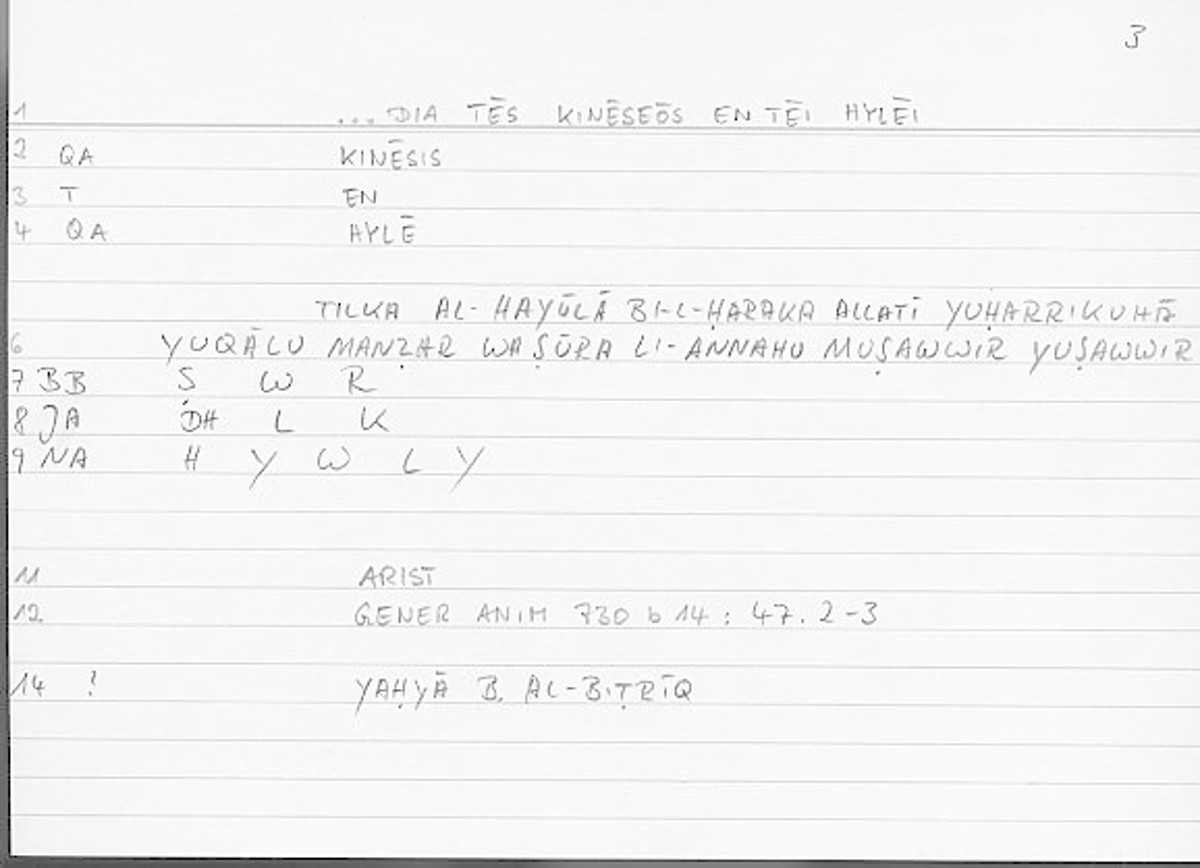 3
1 ... DIA TĒS KINĒSEŌS EN TĒI HYLĒI
2 QA KINĒSIS
3 T EN
4 QA HYLĒ
TILKA AL-HAYŪLĀ BI-L-ḤARAKA ALLATĪ YUḤARRIKUHĀ
6 YUQĀLU MANẒAR WA ṢŪRA LI-ANNAHU MUṢAWWIR YUṢAWWIR
7 BB Ṣ W R
8 JA DH L K
9 NA H Y W L Y
11 ARIST
12. GENER ANIM 730 b 14 : 47. 2-3
14 ? YAḤYĀ B. AL-BIṬRĪQ